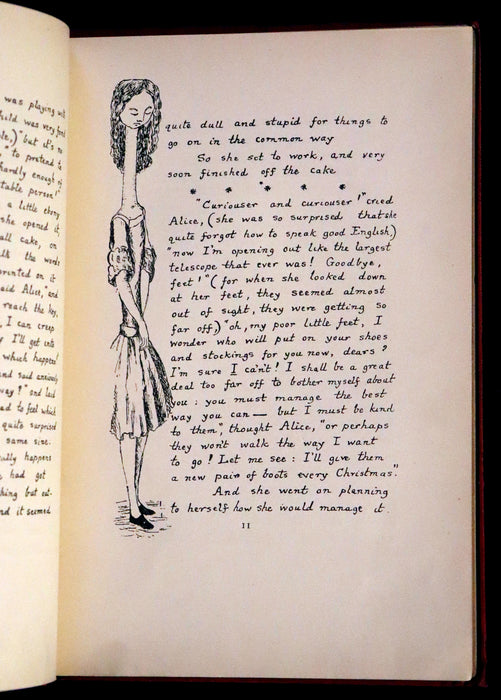 was playing
child was very fond
" but it's no
"to pretend to
hardly enough of
table person!
a little ebony
she opened it,
all cake, on
the words
printed on it
said Alice, "and
reach the key,
I can creep
I'll get into
which happens!
and said anxiously
way?" and laid
to feel which
quite surprised
same size.
happens
had got
thing but out-
nd it seemed
quite dull and stupid for things to
go on in the common way
So she set to work, and very
soon finished off the cake
* * * * *
"Curiouser and curiouser!" cried
Alice, (she was so surprised that she
quite forgot how to speak good English)
"now I'm opening out like the largest
telescope that ever was! Goodbye,
feet!" (for when she looked down
at her feet, they seemed almost
out of sight, they were getting so
far off,) "oh, my poor little feet, I
wonder who will put on your shoes
and stockings for you now, dears?
I'm sure I can't! I shall be a great
deal too far off to bother myself about
you: you must manage the best
way you can — but I must be kind
to them", thought Alice, "or perhaps
they won't walk the way I want
to go! Let me see: I'll give them
a new pair of boots every Christmas."
And she went on planning
to herself how she would manage it.
11